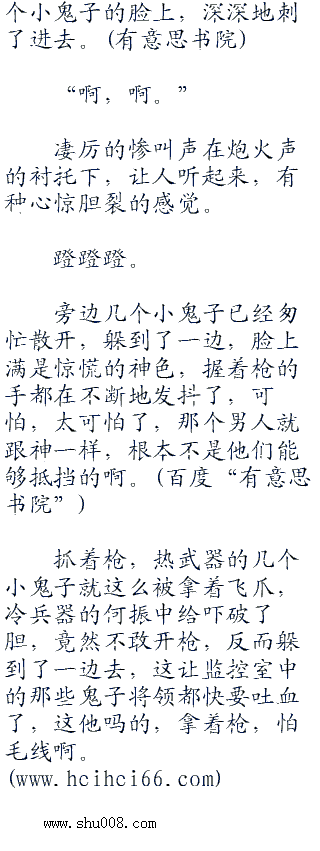 个小鬼子的脸上，深深地刺
了进去。(有意思书院)
“啊，啊。”
凄厉的惨叫声在炮火声
的衬托下，让人听起来，有
种心惊胆裂的感觉。
蹬蹬蹬。
旁边几个小鬼子已经匆
忙散开，躲到了一边，脸上
满是惊慌的神色，握着枪的
手都在不断地发抖了，可
怕，太可怕了，那个男人就
跟神一样，根本不是他们能
够抵挡的啊。(百度“有意思
书院”)
抓着枪，热武器的几个
小鬼子就这么被拿着飞爪，
冷兵器的何振中给吓破了
胆，竟然不敢开枪，反而躲
到了一边去，这让监控室中
的那些鬼子将领都快要吐血
了，这他吗的，拿着枪，怕
毛线啊。
(www.hcihci66.com)
www.shu008.com